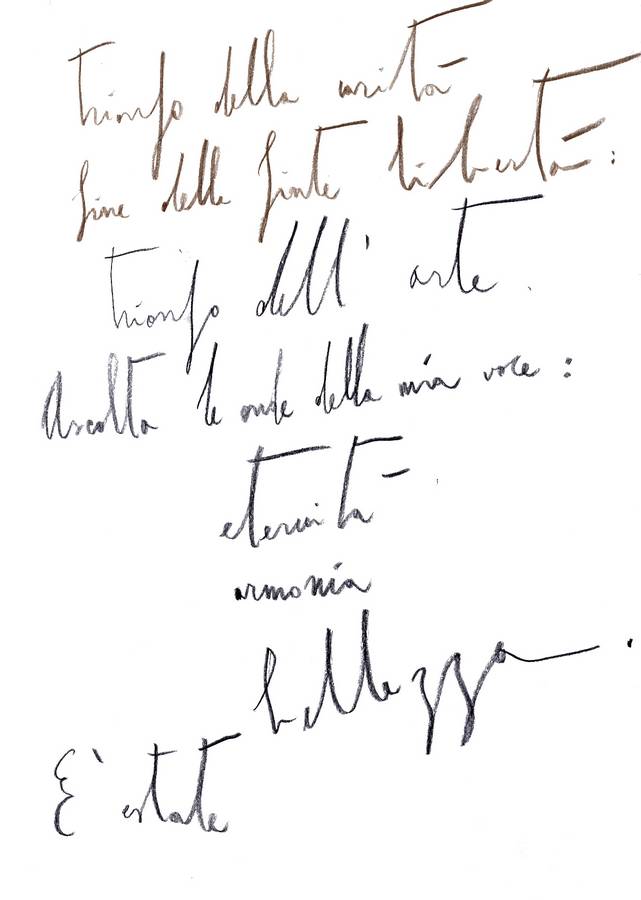 trionfo della
fine delle finte libertà:
trionfo dell' arte.
Ascolta le onde della mia voce:
eternità
armonia
bellezza.
E' estate